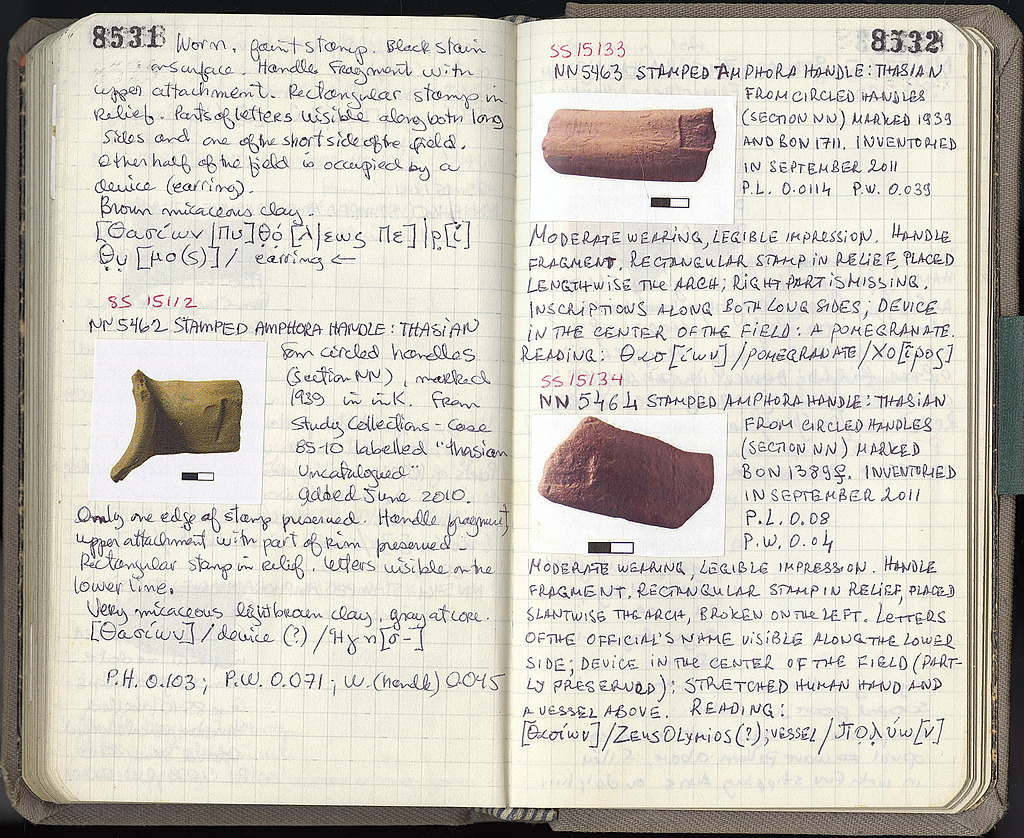 8531
Worn, faint stamp. Black stain
on surface. Handle Fragment with
upper attachment. Rectangular stamp in
Relief. Parts of letters visible along both long
sides and one of the short side of the field.
Other half of the field is occupied by a
device (earring).
Brown micaceous clay.
[Θασίων |Πυ]θό[λ|εως Πε]|ρ[ί]
Θυ[μο(ς)] / earring ←
SS 15112
NN5462 STAMPED AMPHORA HANDLE: THASIAN
from circled handles
(section NN), marked
1939 in ink. From
Study Collections - Case
85-10 labelled "Thasian
Uncatalogued"
added June 2010.
Only one edge of stamp preserved. Handle fragment,
upper attachment with part of rim preserved.
Rectangular stamp in relief. letters visible on the
lower line.
Very micaceous light brown clay, gray at core.
[Θασίων] / device (?) /
P.H. 0.103; P.W. 0.071; W. (handle) 0.045
8532
SS 15133
NN5463 STAMPED AMPHORA HANDLE: THASIAN
FROM CIRCLED HANDLES
(SECTION NN) MARKED 1939
AND BON 1711. INVENTORIED
IN SEPTEMBER 2011
P.L. 0.0114 P.W. 0.039
MODERATE WEARING, LEGIBLE IMPRESSION. HANDLE
FRAGMENT. RECTANGULAR STAMP IN RELIEF, PLACED
LENGTHWISE THE ARCH; RIGHT PART IS MISSING.
INSCRIPTIONS ALONG BOTH LONG SIDES; DEVICE
IN THE CENTER OF THE FIELD: A POMEGRANATE.
READING: Θασ[ίων] / POMEGRANATE / Χο[ῖρος]
SS 15134
NN 5464 STAMPED AMPHORA HANDLE: THASIAN
FROM CIRCLED HANDLES
(SECTION NN) MARKED
BON 1389ς. INVENTORIED
IN SEPTEMBER 2011
P.L. 0.08
P.W. 0.04
MODERATE WEARING, LEGIBLE IMPRESSION. HANDLE
FRAGMENT. RECTANGULAR STAMP IN RELIEF, PLACED
SLANTWISE THE ARCH, BROKEN ON THE LEFT. LETTERS
OF THE OFFICIAL'S NAME VISIBLE ALONG THE LOWER
SIDE; DEVICE IN THE CENTER OF THE FIELD (PART-
LY PRESERVED): STRETCHED HUMAN HAND AND
A VESSEL ABOVE. READING:
[Θασίων] / ZEUS OLYMIOS (?); VESSEL / Πολύω[ν]